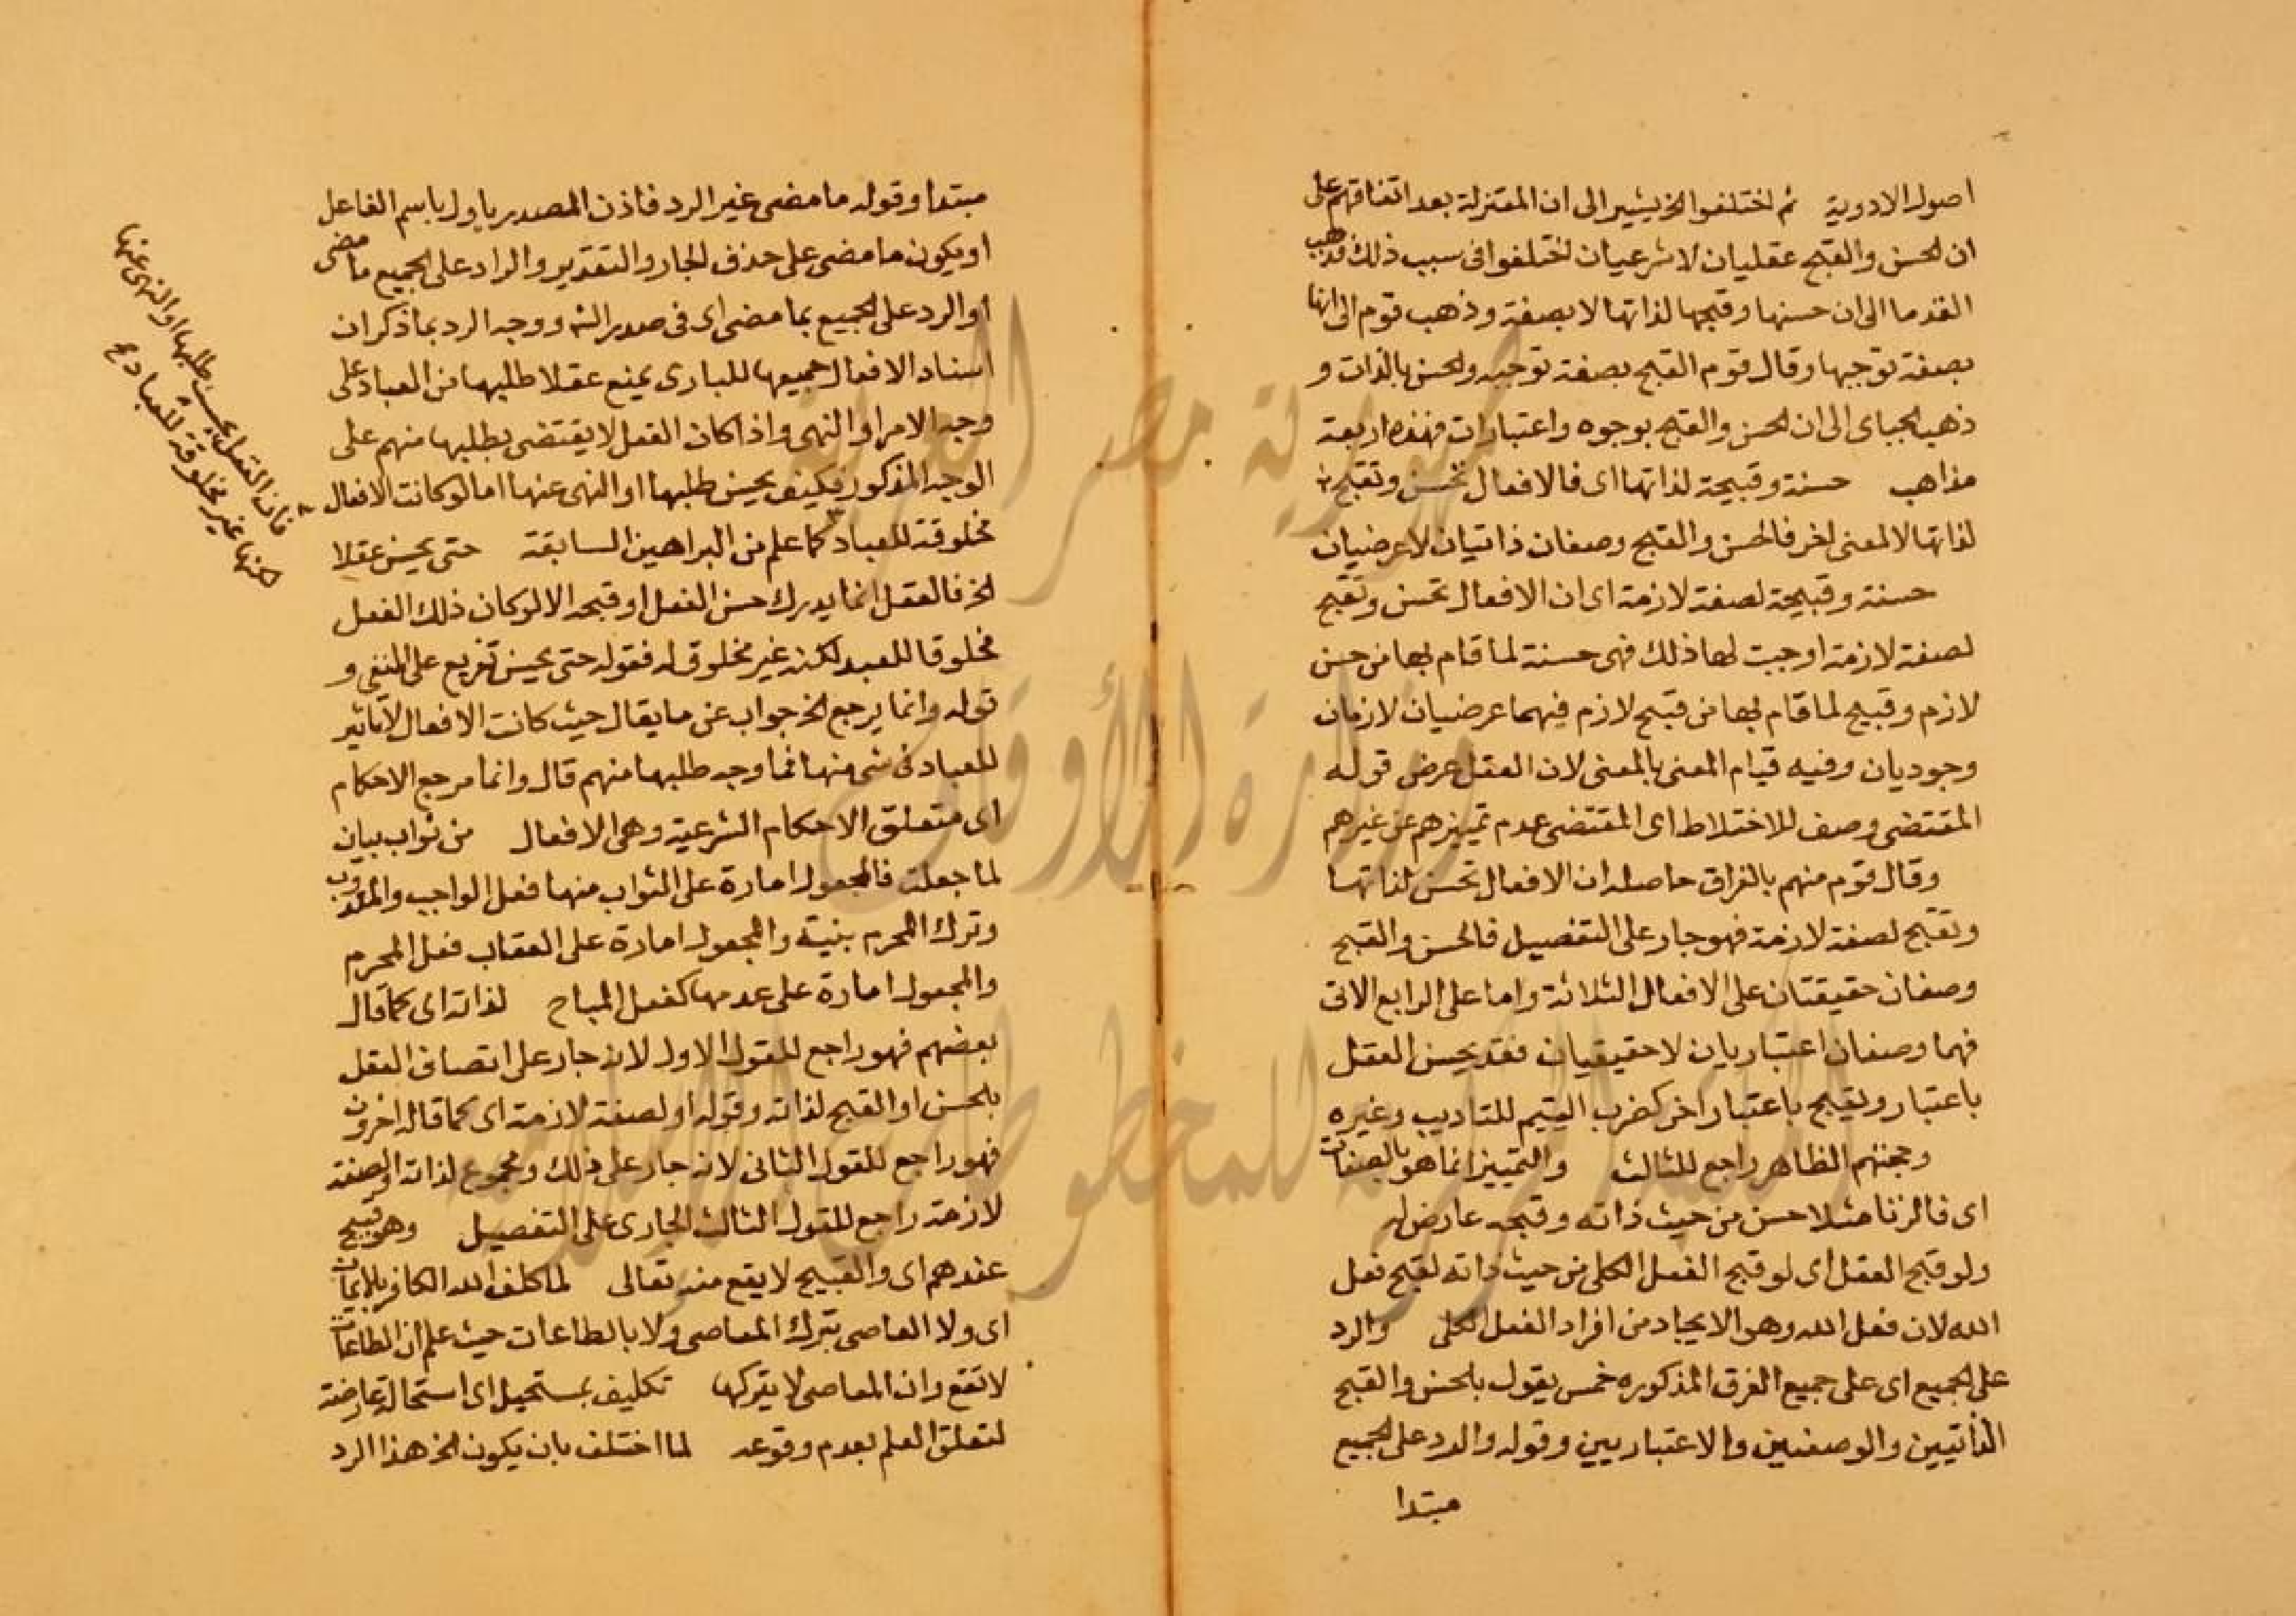 اصول الادوية ثم اختلفوا الخ يشير الى ان المعتزلة بعد اتفاقهم على
ان الحسن والقبح عقليان لا شرعيان اختلفوا فى سبب ذلك فذهب
القدما الى ان حسنها وقبحها لذاتها لا بصفة وذهب قوم الى انها
بصفة توجبها وقال قوم القبح بصفة توجبه والحسن بالذات و
ذهب الجباى الى ان الحسن والقبح بوجوه واعتبارات فهذه اربعة
مذاهب حسنة وقبيحة لذاتها اى فالافعال تحسن وتقبح
لذاتها لا لمعنى اخر فالحسن والقبح وصفان ذاتيان لا عرضيان
حسنة وقبيحة لصفة لازمة اى ان الافعال تحسن وتقبح
لصفة لازمة اوجبت لها ذلك فهى حسنة لما قام بها من حسن
لازم وقبيح لما قام بها من قبح لازم فهما عرضيان لازمان
وجوديان وفيه قيام المعنى بالمعنى لان العقل عرض قوله
المقتضى وصف للاختلاط اى المقتضى عدم تمييزهم عن غيرهم
وقال قوم منهم بالفراق حاصله ان الافعال تحسن لذاتها
وتقبح لصفة لازمة فهو جار على التفصيل فالحسن والقبح
وصفان حقيقتان على الافعال الثلاثة واما على الرابع الاتى
فهما وصفان اعتباريان لا حقيقيان فقد يحسن العقل
باعتبار ويقبح باعتبار اخر كضرب اليتيم للتاديب وغيره
وحجتهم الظاهر راجع للثالث والتمييز انما هو بالصفات
اى فالزنا مثلا حسن من حيث ذاته وقبحه عارض له
ولو قبح العقل اى لو قبح الفعل الكلى من حيث ذاته لقبح فعل
الله لان فعل الله وهو الايجاد من افراد الفعل الكلى والرد
على الجميع اى على جميع الفرق المذكوره خمس يقول بالحسن والقبح
الذاتيين والوصفيين والاعتباريين وقوله والرد على الجميع
مبتدا
مبتدا وقوله ما مضى غير الرد فاذن المصدر ياول باسم الفاعل
او يكون ما مضى على حذف الجار والتقدير والراد على الجميع ما مضى
او الرد على الجميع بما مضى اى فى صدر الشه ووجه الرد بما ذكر ان
اسناد الافعال جميعها للبارى يمنع عقلا طلبها من العباد على
وجه الامر او النهى واذا كان الفعل لا يقتضى بطلبها منهم على
الوجه المذكور فكيف يحسن طلبها او النهى عنها اما لو كانت الافعال
مخلوقة للعباد كما علم من البراهين السابقة حتى يحسن عقلا
الخ فالعقل انما يدرك حسن الفعل او قبحه الا لو كان ذلك الفعل
مخلوقا للعبد لكنه غير مخلوق له فقوله حتى يحسن تفريع على المنفى و
قوله وانما يرجع الخ جواب عن ما يقال حيث كانت الافعال لا تاثير
للعباد فى شى منها فما وجه طلبها منهم قال وانما مرجع الاحكام
اى متعلق الاحكام الشرعية وهى الافعال من ثواب بيان
لما جعلت فالمجعول امارة على الثواب منها فعل الواجب والمندوب
وترك المحرم بنية والمجعول امارة على العقاب فعل المحرم
والمجعول امارة على عدمها كفعل المباح لذاته اى كما قال
بعضهم فهو راجع للقول الاول لانه جار على اتصاف العقل
بالحسن او القبح لذاته وقوله او لصفة لازمة اى كما قاله اخرون
فهو راجع للقول الثانى لانه جار على ذلك ومجموع لذاته او لصفة
لازمة راجع للقول الثالث الجارى على التفصيل وهو قبيح
عندهم اى والقبيح لا يقع منه تعالى لما كلف الله الكافر بالايمان
اى ولا العاصى بترك المعاصى ولا بالطاعات حيث علم ان الطاعات
لا تقع وان المعاصى لا يتركها تكليف بمستحيل اى استحالة عارضة
لتعلق العلم بعدم وقوعه لما اختلف بان يكون الخ هذا الرد
فان العقل يحسن طلبها او النهى عنها
لكنها غير مخلوقة للعباد
جمهورية مصر العربية
وزارة الأوقاف
المكتبة المركزية للمخطوطات الإسلامية